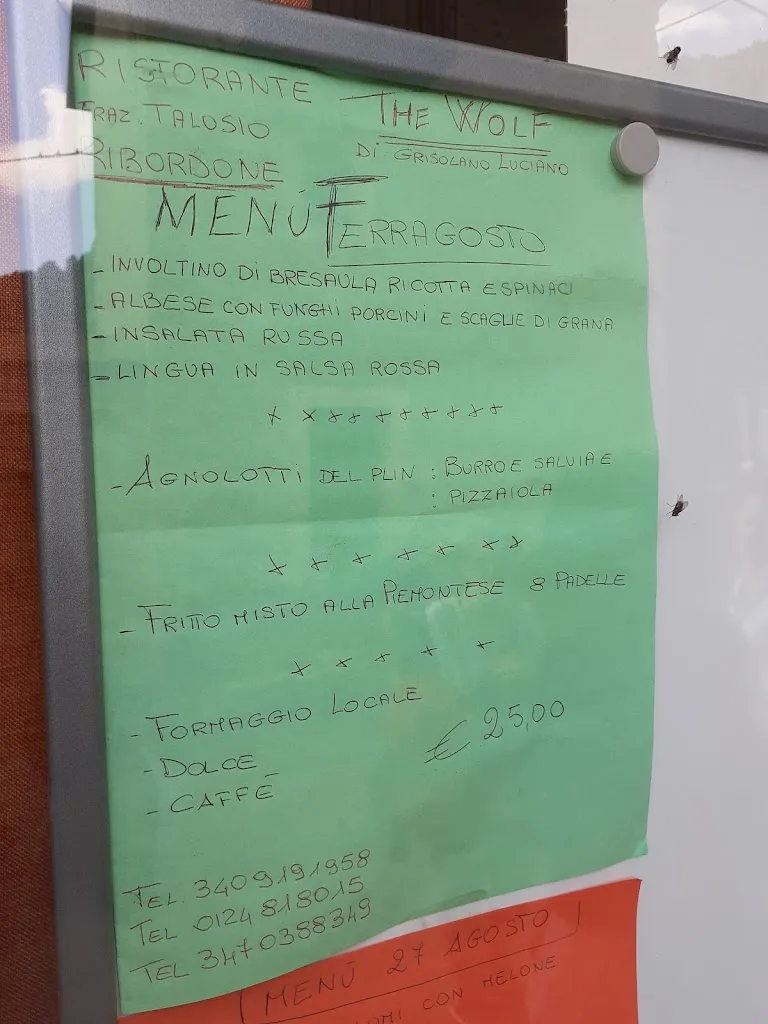 RISTORANTE THE WOLF
FRAZ. TALOSIO DI GRISOLANO LUCIANO
RIBORDONE
MENÚ FERRAGOSTO
- INVOLTINO DI BRESAULA RICOTTA E SPINACI
- ALBESE CON FUNGHI PORCINI E SCAGLIE DI GRANA
- INSALATA RUSSA
- LINGUA IN SALSA ROSSA
- AGNOLOTTI DEL PLIN : BURRO E SALVIA E
: PIZZAIOLA
- FRITTO MISTO ALLA PIEMONTESE 8 PADELLE
- FORMAGGIO LOCALE
- DOLCE € 25,00
- CAFFÉ
TEL. 3409191958
TEL 0124818015
TEL 3470388349
MENÚ 27 AGOSTO
CON MELONE